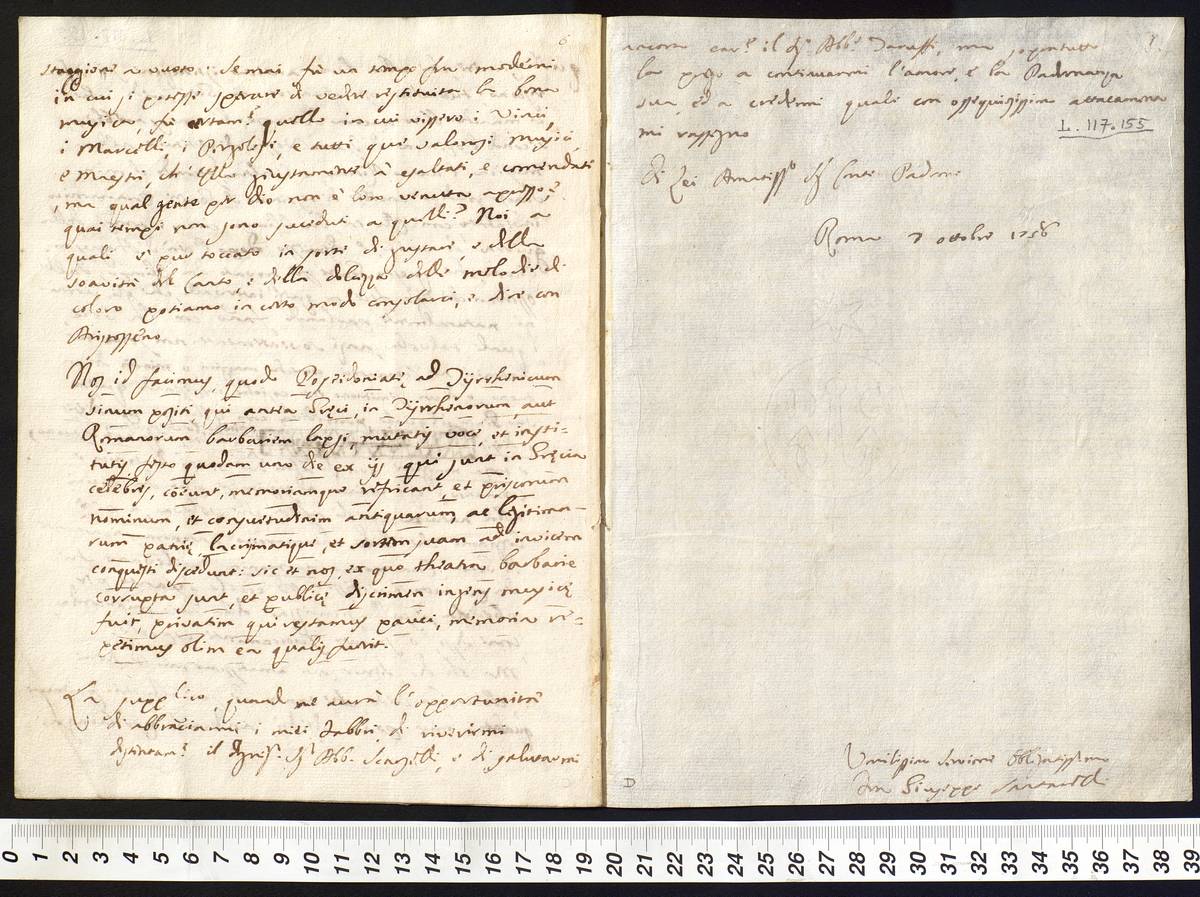 6
Staggione a vuoto. Se mai fù un tempo fra moderni
in cui si potesse sperare di vedere restituita la bona
musica, fù certam.e quello in cui vissero i Vinci,
i Marcelli, i Pergolesi, e tutti que' valorosi Musici,
e Maestri, ch' Ella giustamente à esaltati, e comendati
, ma qual gente per Dio non è loro venuta apresso?
quai tempi non sono succeduti a quelli? Noi a
quali è pur toccato in sorte di gustare, e della
soavità del Canto, e della dolcezza delle melodie di
coloro potiamo in certo modo consolarci, e dire con
Aristosseno
Nos id facimus, quod Possidoniatę ad Tyrrhenicum
sinum positi, qui antea Gręci, in Tyrrhenorum, aut
Romanorum barbariem lapsi, mutatis voce, et insti-
tutis, festo quodam uno die ex iis qui sunt in Gręcia
celebres, coeunt, memoriamque refricant, et priscorum
nominum, et consuetudinum antiquarum, ac legitima-
rum patrię, lacrijmatique, et sortem suam ad invicem
conquesti discedunt: sic et nos, ex quo theatra barbarie
corrupta sunt, et publicę discrimen ingens musicę
fuit, privatim qui restamus pauci, memoria re-
petimus olim ea qualis fuerit.
La supplico, quando ne aurà l'opportunità
di abbracciarmi i miei Fabbri, di riverirmi
distintam.e il Sig.r Abb. Scarselli, e di salutarmi
ancora il Sig.r Abb.e ma sopratutto
la prego a continuarmi l'amore, e la Padronanza
sua, ed a credermi quale con ossequiosissimo attacamento
mi rassegno
L. 117.155
Di Lei Amatiss.o Sig.r Conte Padrone
Roma 7 ottobre 1756
Umilissimo Servitore Obbligatissimo
Don Giuseppe Santarelli
D